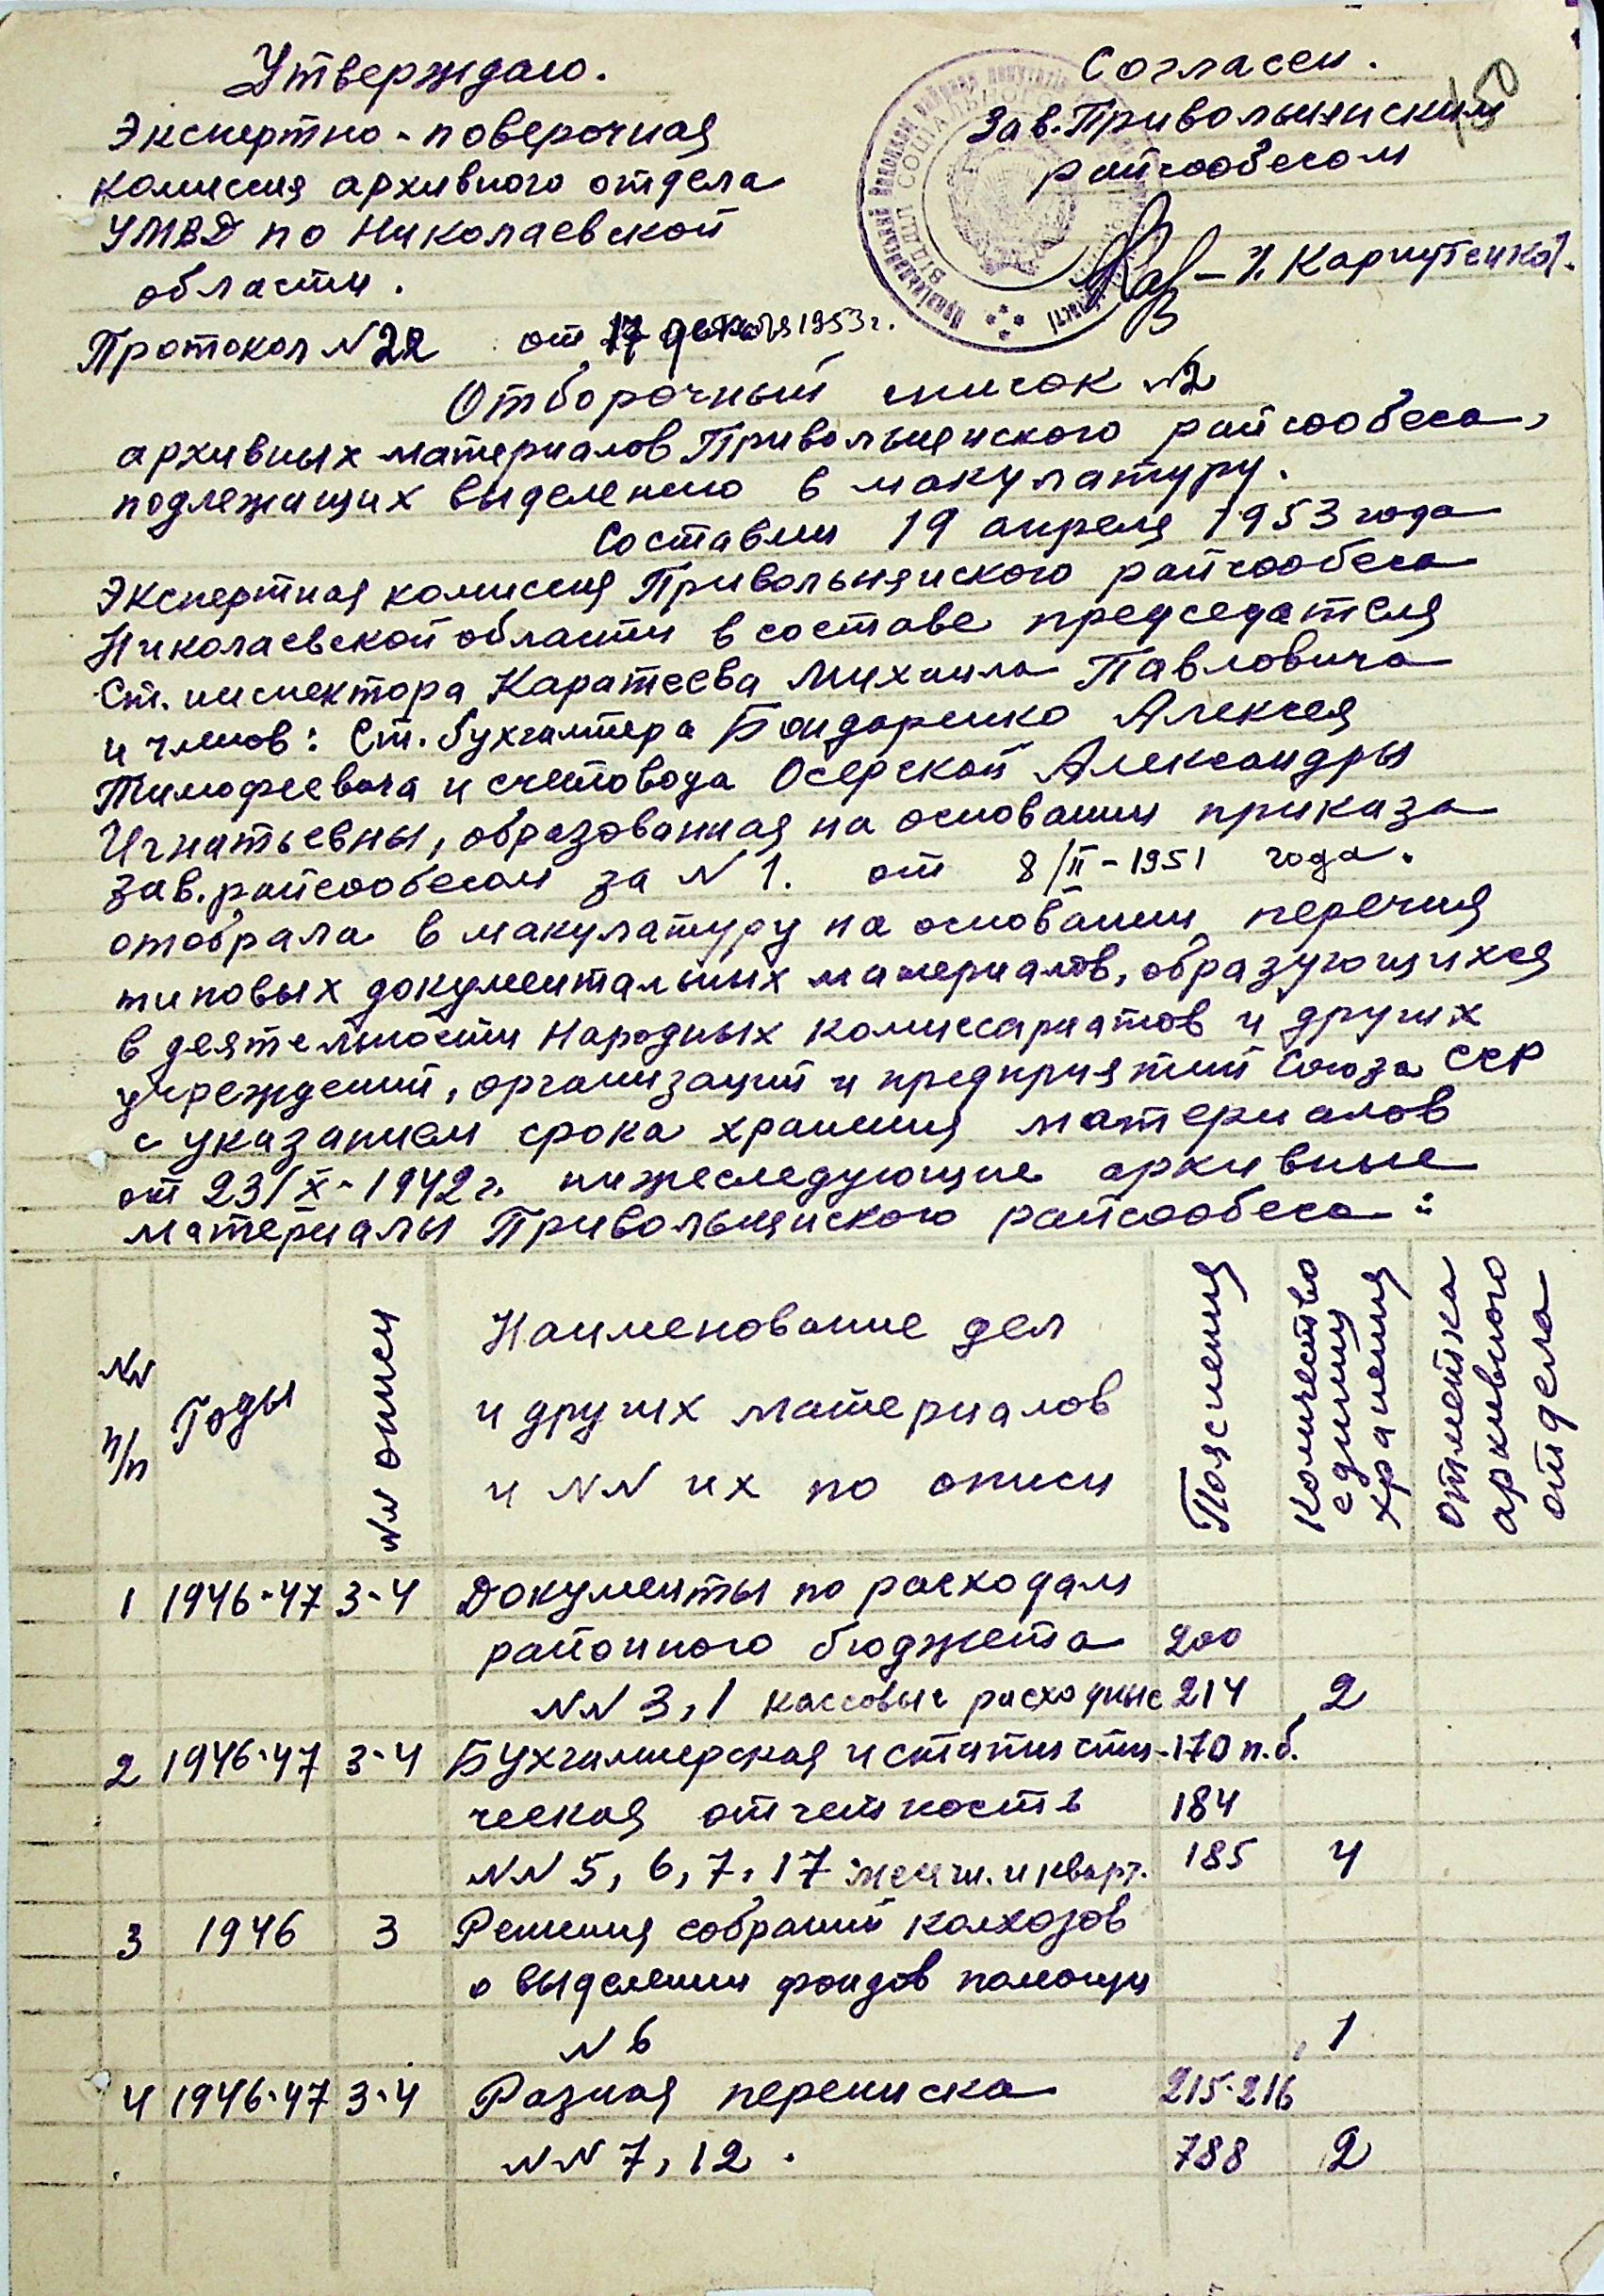 Утверждаю.
Экспертно-поверочная
комиссия архивного отдела
УМВД по Николаевской
области.
Протокол N22 от 17 1953 г.
Согласен.
Зав. Привольнянским
райсобесом
150
Отборочный список N2
архивных материалов Привольнянского райсобеса,
подлежащих выделению в макулатуру.
Составлен 19 апреля 1953 года
Экспертная комиссия Привольнянского райсобеса
Николаевской области в составе председателя
Ст. инспектора Каратеева Михаила Павловича
и членов: Ст. бухгалтера Бондаренко Алексея
Тимофеевича и счетовода Осерской Александры
Игнатьевны, образованная на основании приказа
зав. райсообесом за N 1. от 8/II-1951 года.
отобрала в макулатуру на основании перечня
типовых документальных материалов, образующихся
в деятельности Народных комиссариатов и других
учреждений, организаций и предприятий Союза ССР
с указанием срока хранения материалов
от 23/X-1942 г. нижеследующие архивные
материалы Привольнянского райсообеса:
NN п/п
Годы
NN описи
Наименование дел
и других материалов
и NN их по описи
Пояснения
Количество единиц хранения
Отметка архивного отдела
1 1946-47 3-4 Документы по расходам
районного бюджета 200
NN 3,1 кассовые расходные 214 2
2 1946-47 3-4 Бухгалтерская и статисти- 170 п.б.
ческая отчетность 184
NN 5, 6, 7, 17 месячн. и кварт. 185 4
3 1946 3 Решения собраний колхозов
о выделении фондов помощи
N 6 1
4 1946-47 3-4 Разная переписка 215-216
NN 7, 12. 788 2